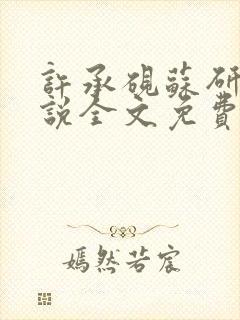 許承硯蘇研
說全文免費
嫣然若宸